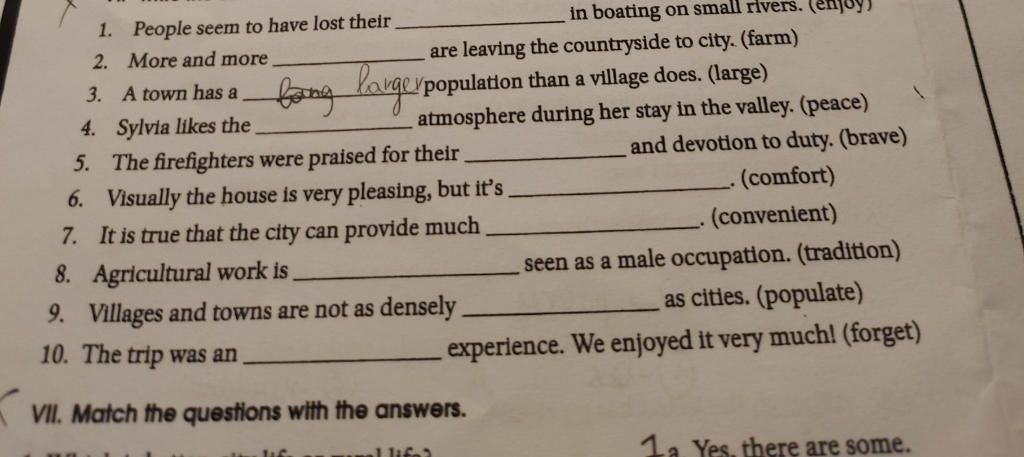 1. People seem to have lost their ____________ in boating on small rivers. (enjoy)
2. More and more ____________ are leaving the countryside to city. (farm)
3. A town has a ____________ larger population than a village does. (large)
4. Sylvia likes the ____________ atmosphere during her stay in the valley. (peace)
5. The firefighters were praised for their ____________ and devotion to duty. (brave)
6. Visually the house is very pleasing, but it's ____________. (comfort)
7. It is true that the city can provide much ____________. (convenient)
8. Agricultural work is ____________ seen as a male occupation. (tradition)
9. Villages and towns are not as densely ____________ as cities. (populate)
10. The trip was an ____________ experience. We enjoyed it very much! (forget)
VII. Match the questions with the answers.
1 a Yes, there are some.